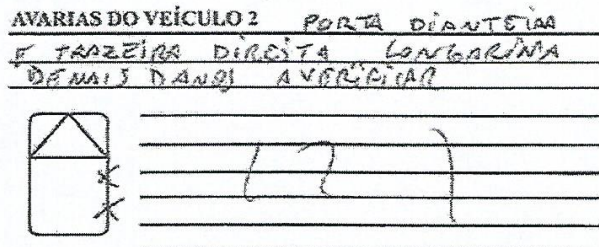 AVARIAS DO VEÍCULO 2 PORTA DIANTEIRA
E TRAZEIRA DIREITA LONGARINA
DEMAIS DANOS AVERIFICAR